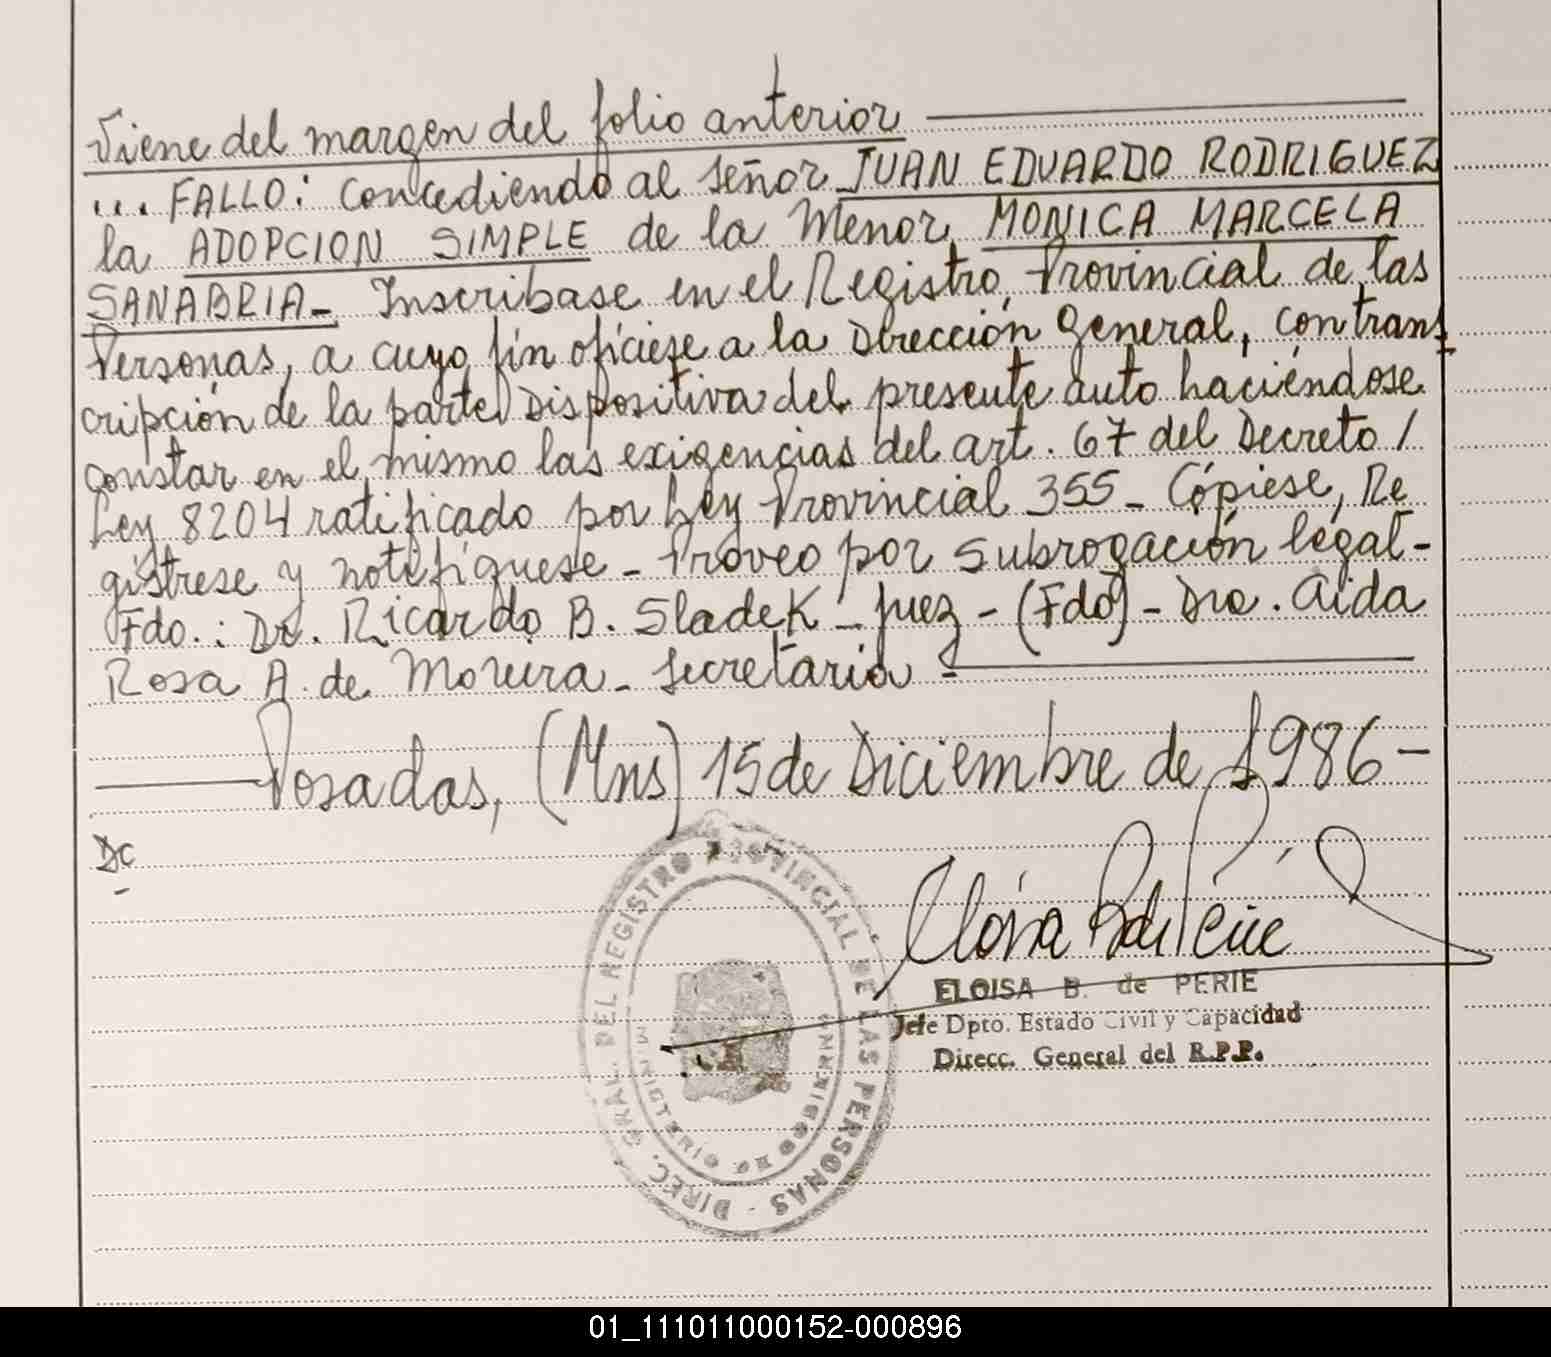 Viene del margen del folio anterior
... FALLO: Concediendo al señor JUAN EDUARDO RODRIGUEZ
la ADOPCION SIMPLE de la Menor MONICA MARCELA
SANABRIA- Inscribase en el Registro Provincial de las
Personas, a cuyo fin ofíciese a la Dirección General, con trans-
cripción de la parte Dispositiva del presente auto haciéndose
constar en el mismo las exigencias del art. 67 del Decreto /
Ley 8204 ratificado por Ley Provincial 355- Cópiese, Re
gístrese y notifíquese- Proveo por subrogación legal-
Fdo.: Dr. Ricardo B. Sladek - Juez - (Fdo) - Dra. Aida
Rosa A. de Moreira - Secretaria -
Posadas, (Mns) 15 de Diciembre de 1986-
Dc
DIREC. GRAL. DEL REGISTRO PROVINCIAL DE LAS PERSONAS -
MINISTERIO DE GOBIERNO
ELOISA B. de PERIE
Jefe Dpto. Estado Civil y Capacidad
Direcc. General del R.P.P.
01_111011000152-000896